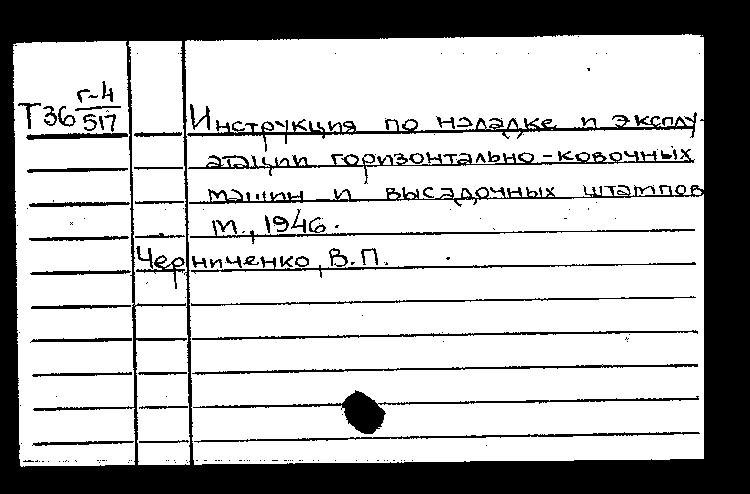 Т36 г-4/517 Инструкция по наладке и эксплу-
атации горизонтально-ковочных
машин и высадочных штампов
М., 1946.
Черниченко, В.П.